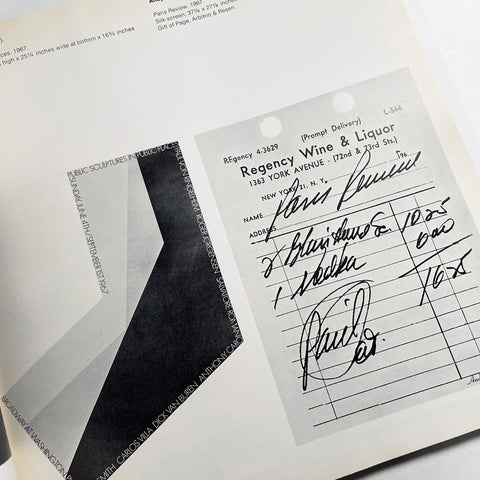 ces. 1967.
high x 29¼ inches wide at bottom x 16¾ inches
Paris Review. 1967.
Silk screen, 37⅛ x 27⅛ inches
Gift of Page, Arbitrio & Resen.
PUBLIC SCULPTURES IN PUBLIC PLACES
SUNDAY JUNE 4TH/SEPTEMBER 1ST 1967
BROADWAY AT WASHINGTON
SMITH CARLOS VILLA DICK VAN BUREN ANTHONY
SALVATORE ROMANO
L-566
REgency 4-3629 (Prompt Delivery)
Regency Wine & Liquor
1363 YORK AVENUE - (72nd & 73rd Sts.)
NEW YORK 21, N. Y. 196
NAME Paris Review
ADDRESS
2 10.25
1 Vodka 6.00
16.25
Paid